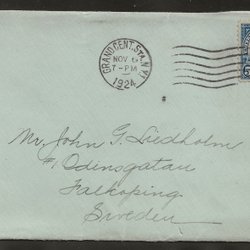 GRAND CENT. STA. N.Y.
NOV 6
7-PM
1924
5
Mr. John G. Liedholm
Odensgatan
Falkoping
Sweden